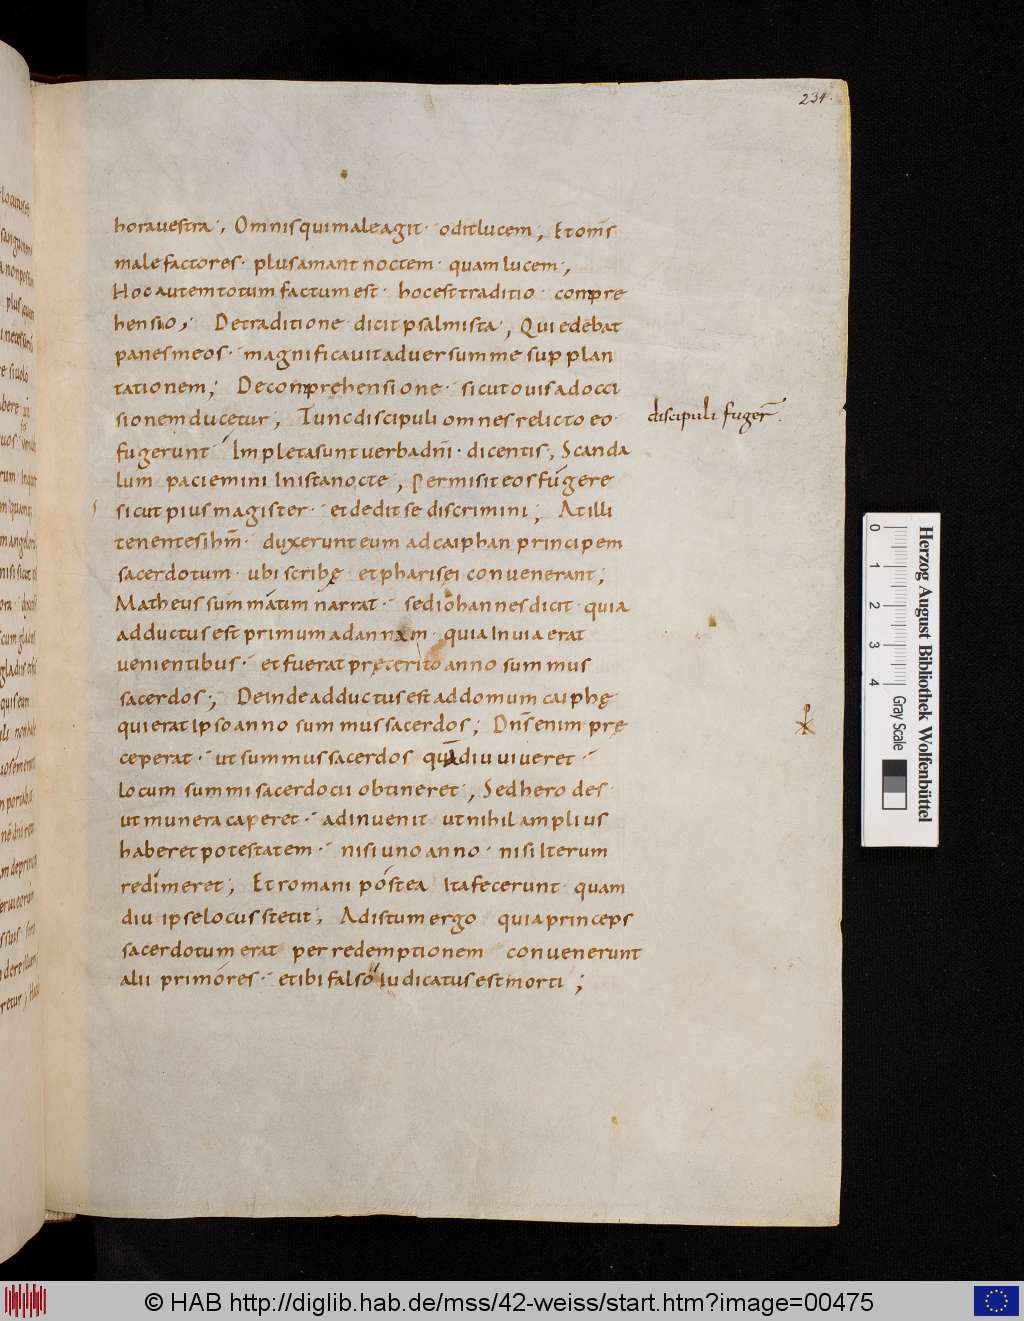 234.
hora uestra ; Omnis qui male agit · odit lucem ; Et om̅s
malefactores · plus amant noctem · quam lucem ;
Hoc autem totum factum est · hoc est traditio · conpre
hensio ; De traditione dicit psalmista ; Qui edebat
panes meos · magnificauit aduersum me supplan
tationem ; De conprehensione · sicut ouis ad occi
sionem ducetur ; Tunc discipuli omnes relicto eo ·
discipuli fuger̅.
fugerunt · Impleta sunt uerba dn̅i · dicentis ; Scanda
lum paciemini In ista nocte ; Permisit eos fugere
sicut pius magister · et dedit se discrimini ; At illi
tenentes ihm̅ · duxerunt eum ad caiphan principem
sacerdotum · ubi scribę et pharisei conuenerant ;
Matheus summatim narrat · sed iohannes dicit · quia
adductus est primum ad annam · quia In uia erat
uenientibus · et fuerat pręterito anno summus
sacerdos ; Deinde adductus est ad domum caiphę
qui erat Ipso anno summus sacerdos ; Dn̅s enim prę
ceperat · ut summus sacerdos quādiu uiueret ·
locum summi sacerdocii obtineret ; Sed herodes ·
ut munera caperet · adinuenit ut nihil amplius
haberet potestatem · nisi uno anno · nisi Iterum
redimeret ; Et romani postea Ita fecerunt quam
diu ipse locus stetit ; Ad istum ergo quia princeps
sacerdotum erat per redemptionem conuenerunt
alii primores · et ibi falso iudicatus est morti ;
Herzog August Bibliothek Wolfenbüttel
0 1 2 3 4
Gray Scale
© HAB http://diglib.hab.de/mss/42-weiss/start.htm?image=00475